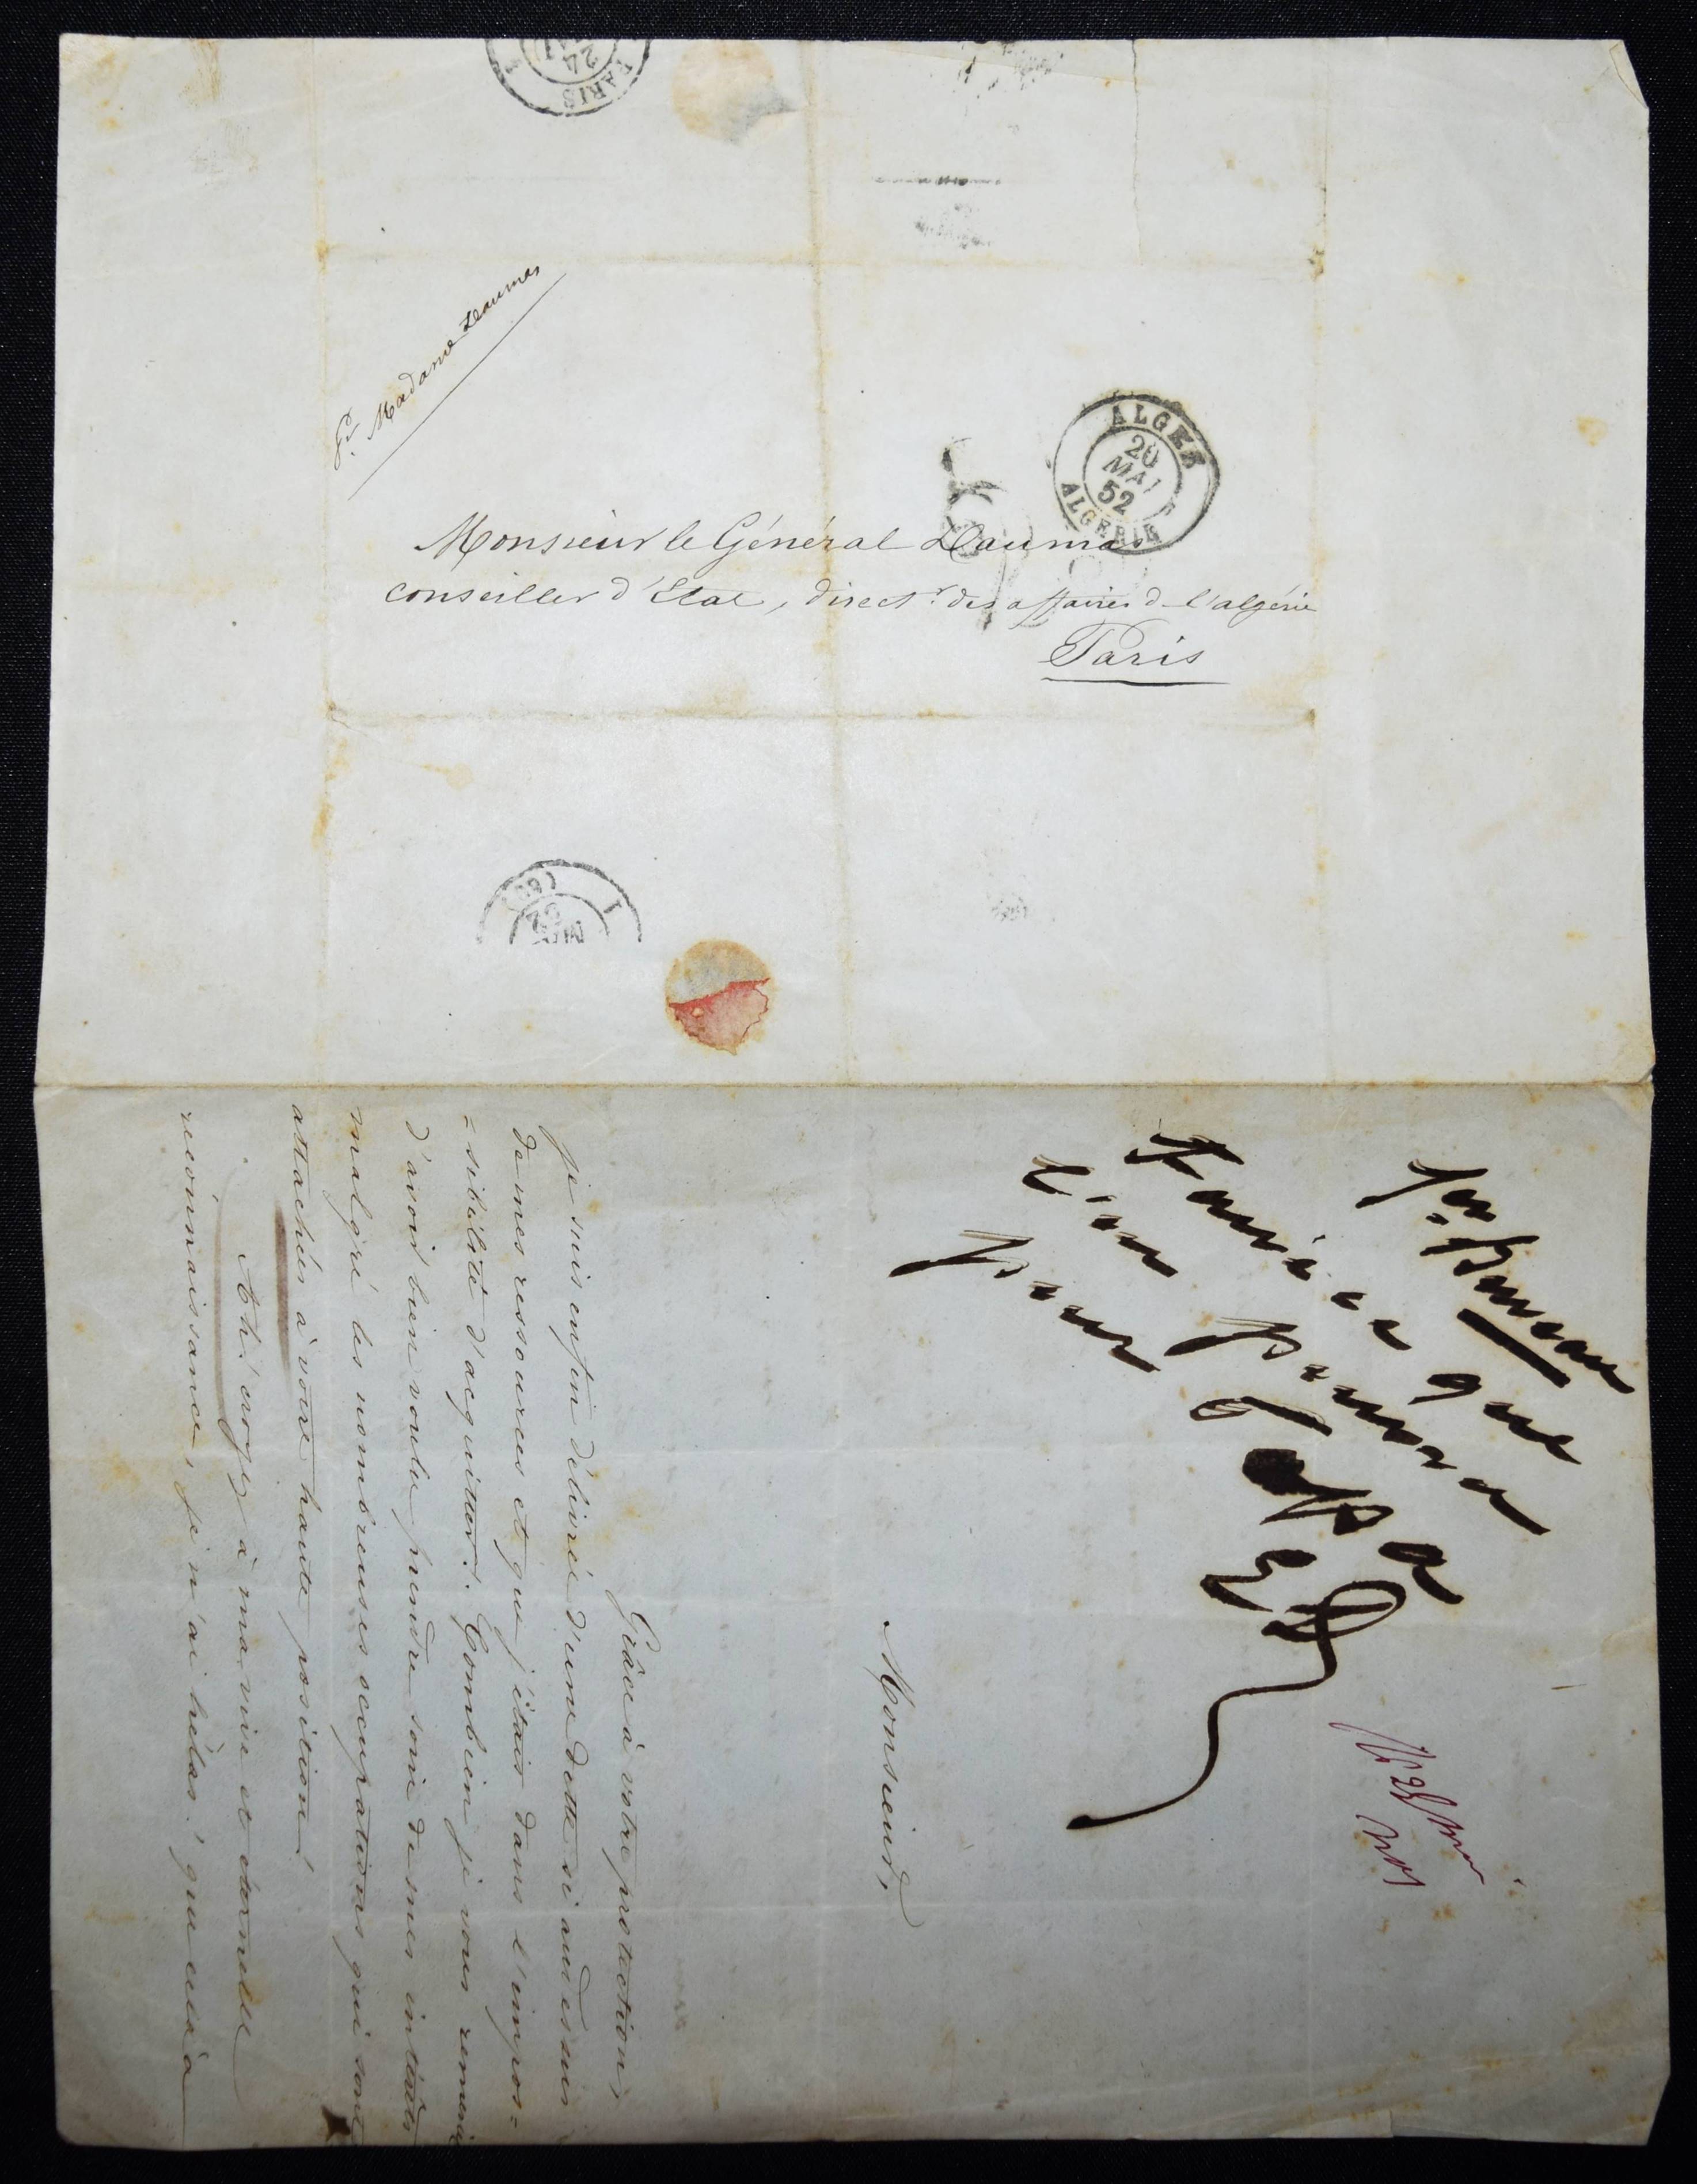 PARIS
24
MAI
Pr. Madame Daumas
ALGER
20
MAI
52
ALGERIE
Monsieur le Général Daumas
conseiller d'Etat, direct.r des affaires de l'algérie
Paris
(60)
1er Bureau
Savoir ce que
l'on pourra
pour
Monsieur,
Grâce à votre protection,
je suis enfin délivrée d'une dette si au dessus
de mes ressources et que j'étais dans l'impos=
=sibilité d'acquitter. Combien je vous remercie
d'avoir bien voulu prendre soin de mes intérêts
malgré les nombreuses occupations qui sont
attachées à votre haute position!
Ah! croyez à ma vive et éternelle
reconnaissance, je n'ai hélas! que cela à